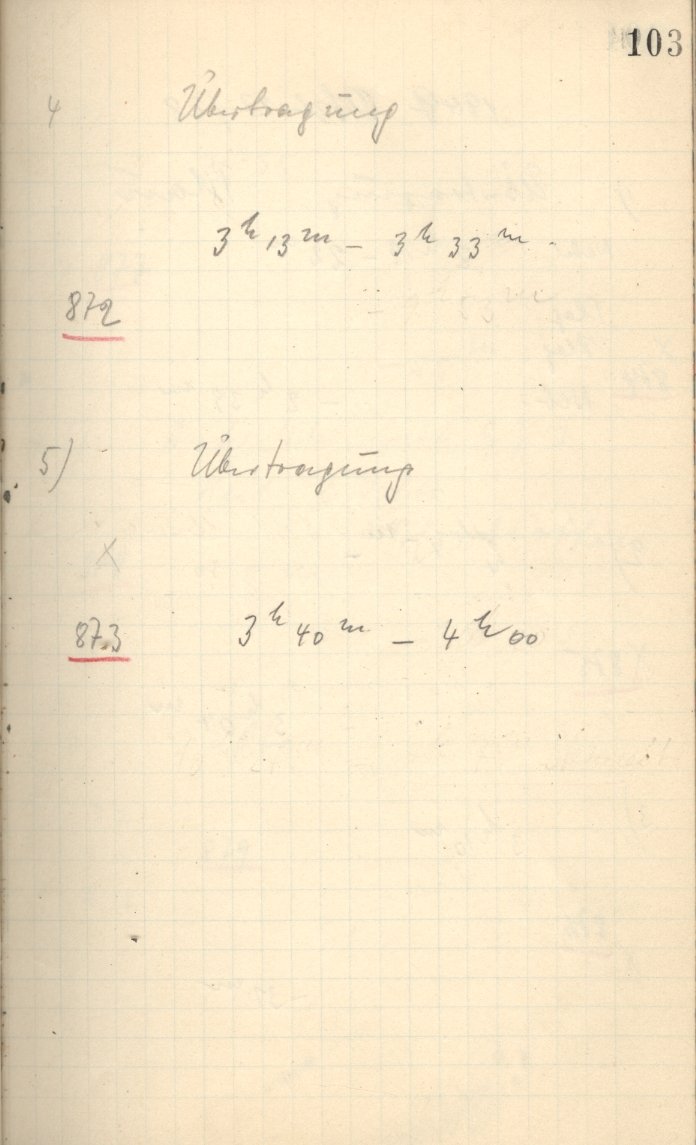 103
4 Übertragung
3ʰ 13ᵐ – 3ʰ 33ᵐ.
872
5) Übertragung
X
873 3ʰ 40ᵐ – 4ʰ 00